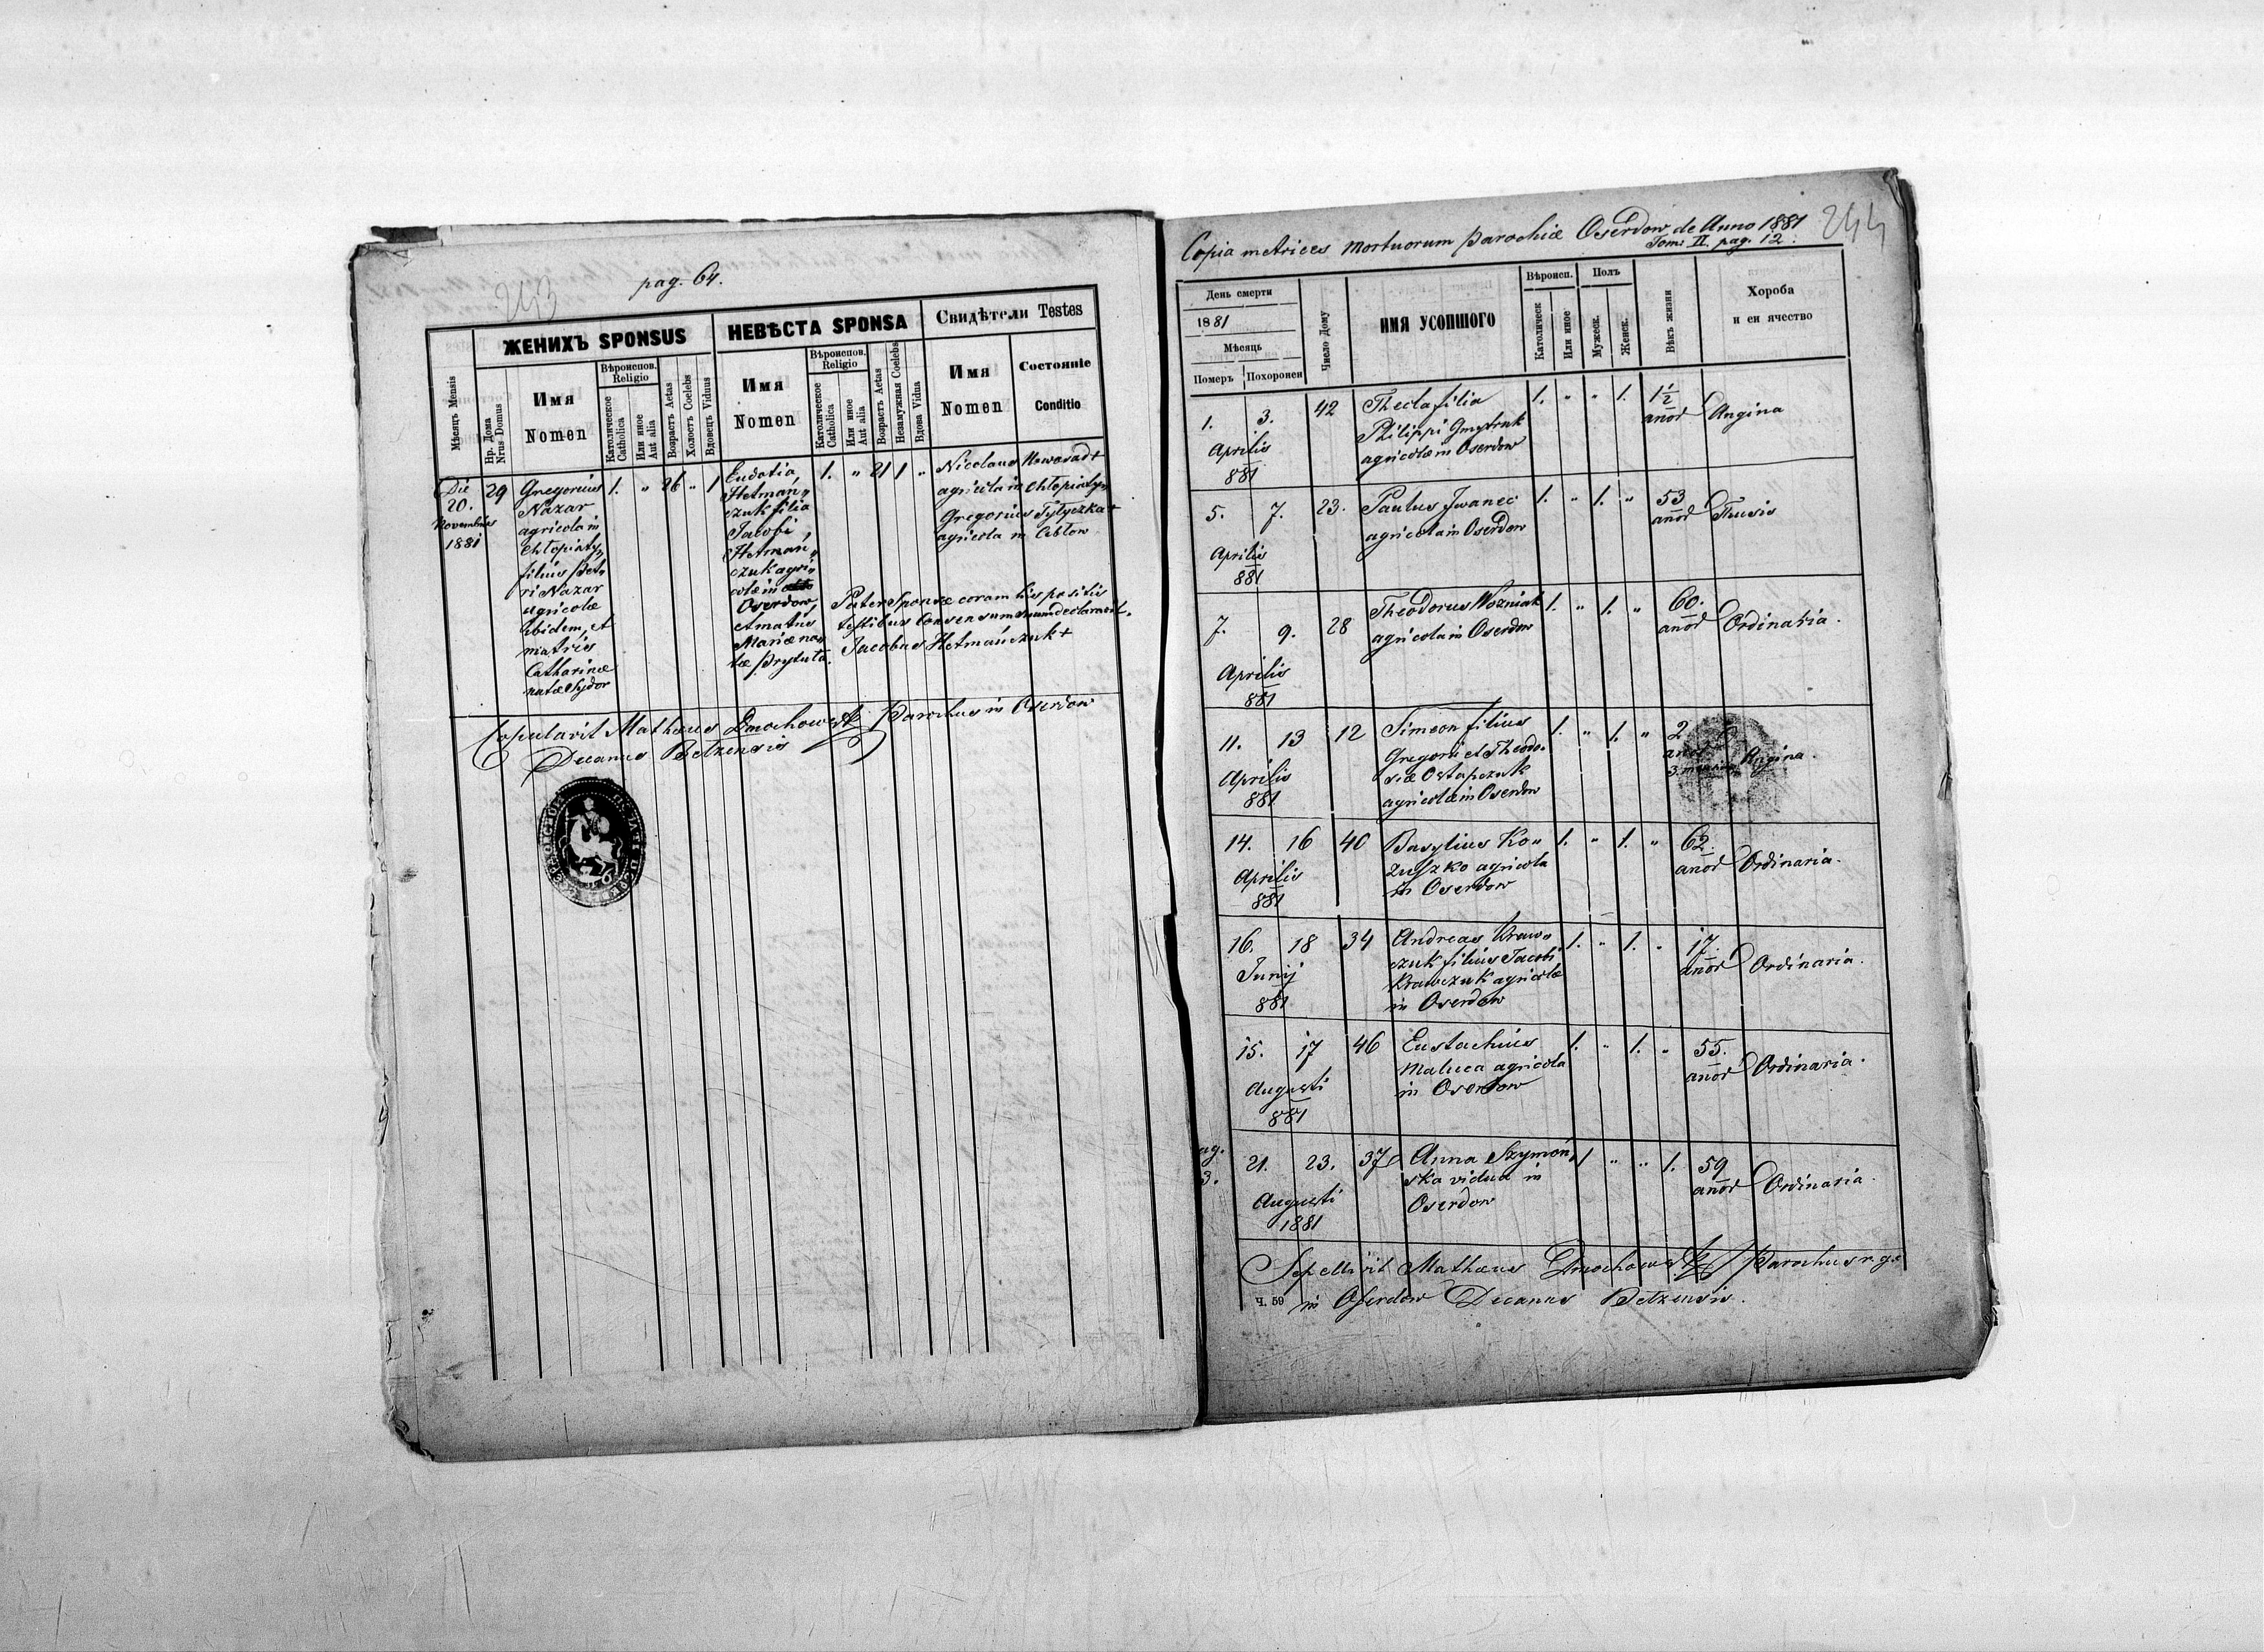 243
pag. 64.
ЖЕНИХЪ SPONSUS
НЕВѢСТА SPONSA
Свидѣтели Testes
Мѣсяць Mensis
Нр. Дома
Nrus Domus
Имя
Nomen
Вѣроиспов.
Religio
Католическое
Catholica
Или иное
Aut alia
Возрастъ Aetas
Холостъ Coelebs
Вдовець Vidus
Имя
Nomen
Вѣроиспов.
Religio
Католическое
Catholica
Или иное
Aut alia
Возрастъ Aetas
Незамужная Coelebs
Вдова Vidua
Имя
Nomen
Состояніе
Conditio
Die
20.
Novembris
1881
29
Gregorius
Nazar
agricola in
Chłopiaty„
filius Pet„
ri Nazar
agricolae
ibidem, et
matris
Catharinae
natae Sydor
1. „ 26 „ 1
Eudotia,
Hetman„
czuk filia
Jacobi
Hetmań„
czuk agri„
colae in
Oserdow,
et matris
Mariae na„
tae Pryduta.
1. „ 21 1 „
Nicolaus Nowosad +
agricola in Chłopiaty„
Gregorius Tytyczka +
agricola in Cebłow
Pater Sponsae coram his positis
testibus consensum suum declaravit.
Jacobus Hetmańczuk +
Copulavit Mathaeus Dmochowski Parochus in Oserdow
Decanus Betzensis
244
Copia metrices Mortuorum Parochiae Oserdow de Anno 1881
Tom: II. pag. 12.
День смерти
1881
Мѣсяць
Померъ Похоронен
Число Дому
ИМЯ УСОПШОГО
Вѣроисп.
Католическ
Или иное
Полъ
Мужеск.
Женск.
Вѣкъ жизни
Хороба
и еи ячество
1. 3.
Aprilis
881
42
Thecla filia
Philippi Gmytruk
agricolae in Oserdow
1. „ „ 1.
1½
anor
Angina
5. 7.
Aprilis
881
23.
Paulus Iwanec
agricola in Oserdow
1. „ 1. „
53
anor
Thusis
7. 9.
Aprilis
881
28
Theodorus Wozniak
agricola in Oserdow
1. „ 1. „
60.
anor
Ordinaria.
11. 13
Aprilis
881
12
Simeon filius
Gregorii et Theodo„
siae Ostapczuk
agricolae in Oserdow
1. „ 1. „
2
anor
Angina.
14. 16
Aprilis
881
40
Basylius Ko„
zuszko agricola
in Oserdow
1. „ 1. „
62.
anor
Ordinaria.
16. 18
Junij
881
34
Andreas Kraw„
czuk filius Jacobi
Krawczuk agricolae
in Oserdow
1. „ 1. „
17.
anor
Ordinaria.
15. 17
Augusti
881
46
Eustachius
Maluca agricola
in Oserdow
1. „ 1. „
55.
anor
Ordinaria.
ag.
3.
21. 23.
Augusti
1881
37
Anna Szymoń„
ska vidua in
Oserdow
1 „ „ 1.
59
anor
Ordinaria.
Sepellivit Mathaeus Dmochowski Parochus r. g.
in Oserdow Decanus Betzensis.
Ч. 59